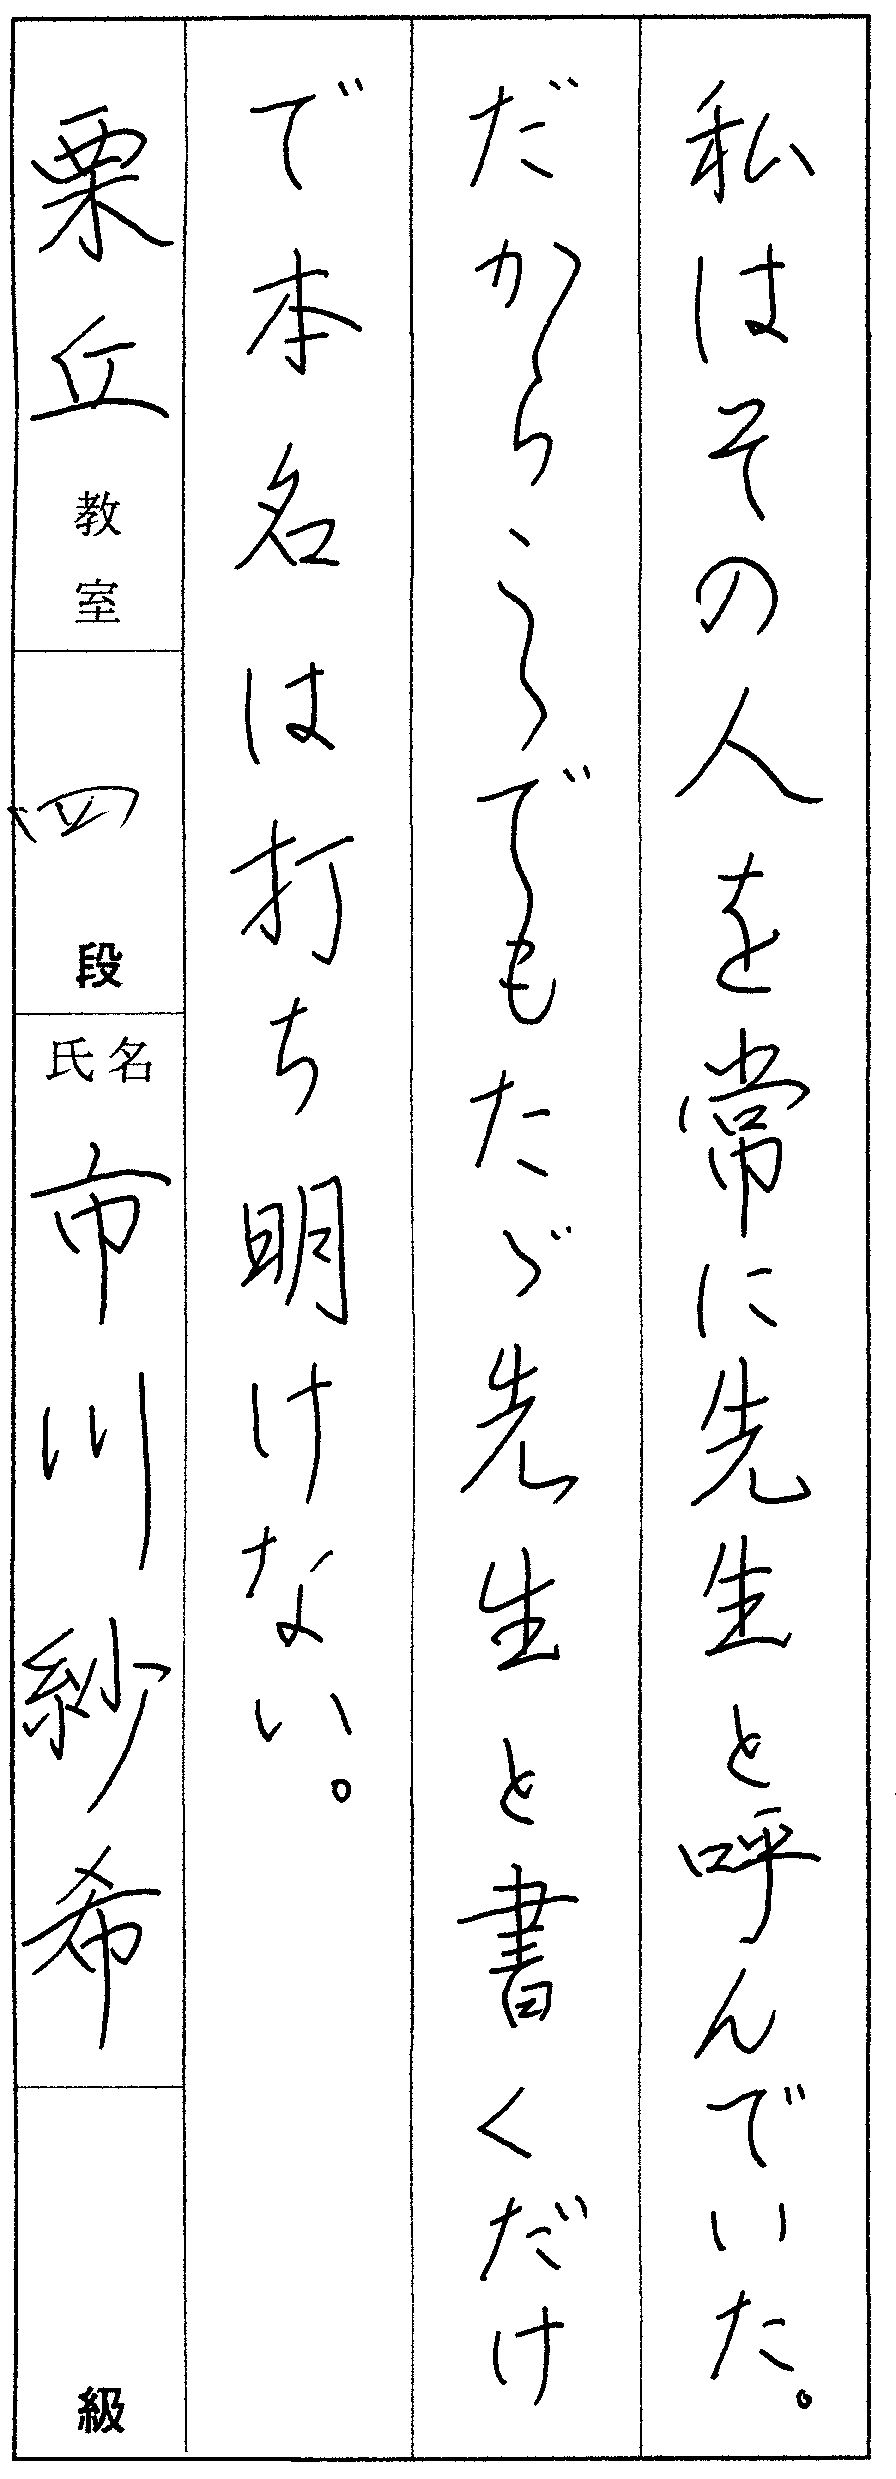 私はその人を常に先生と呼んでいた。
だからこゝでもたゞ先生と書くだけ
で本名は打ち明けない。
栗丘教室
四段
氏名 市川紗希
級